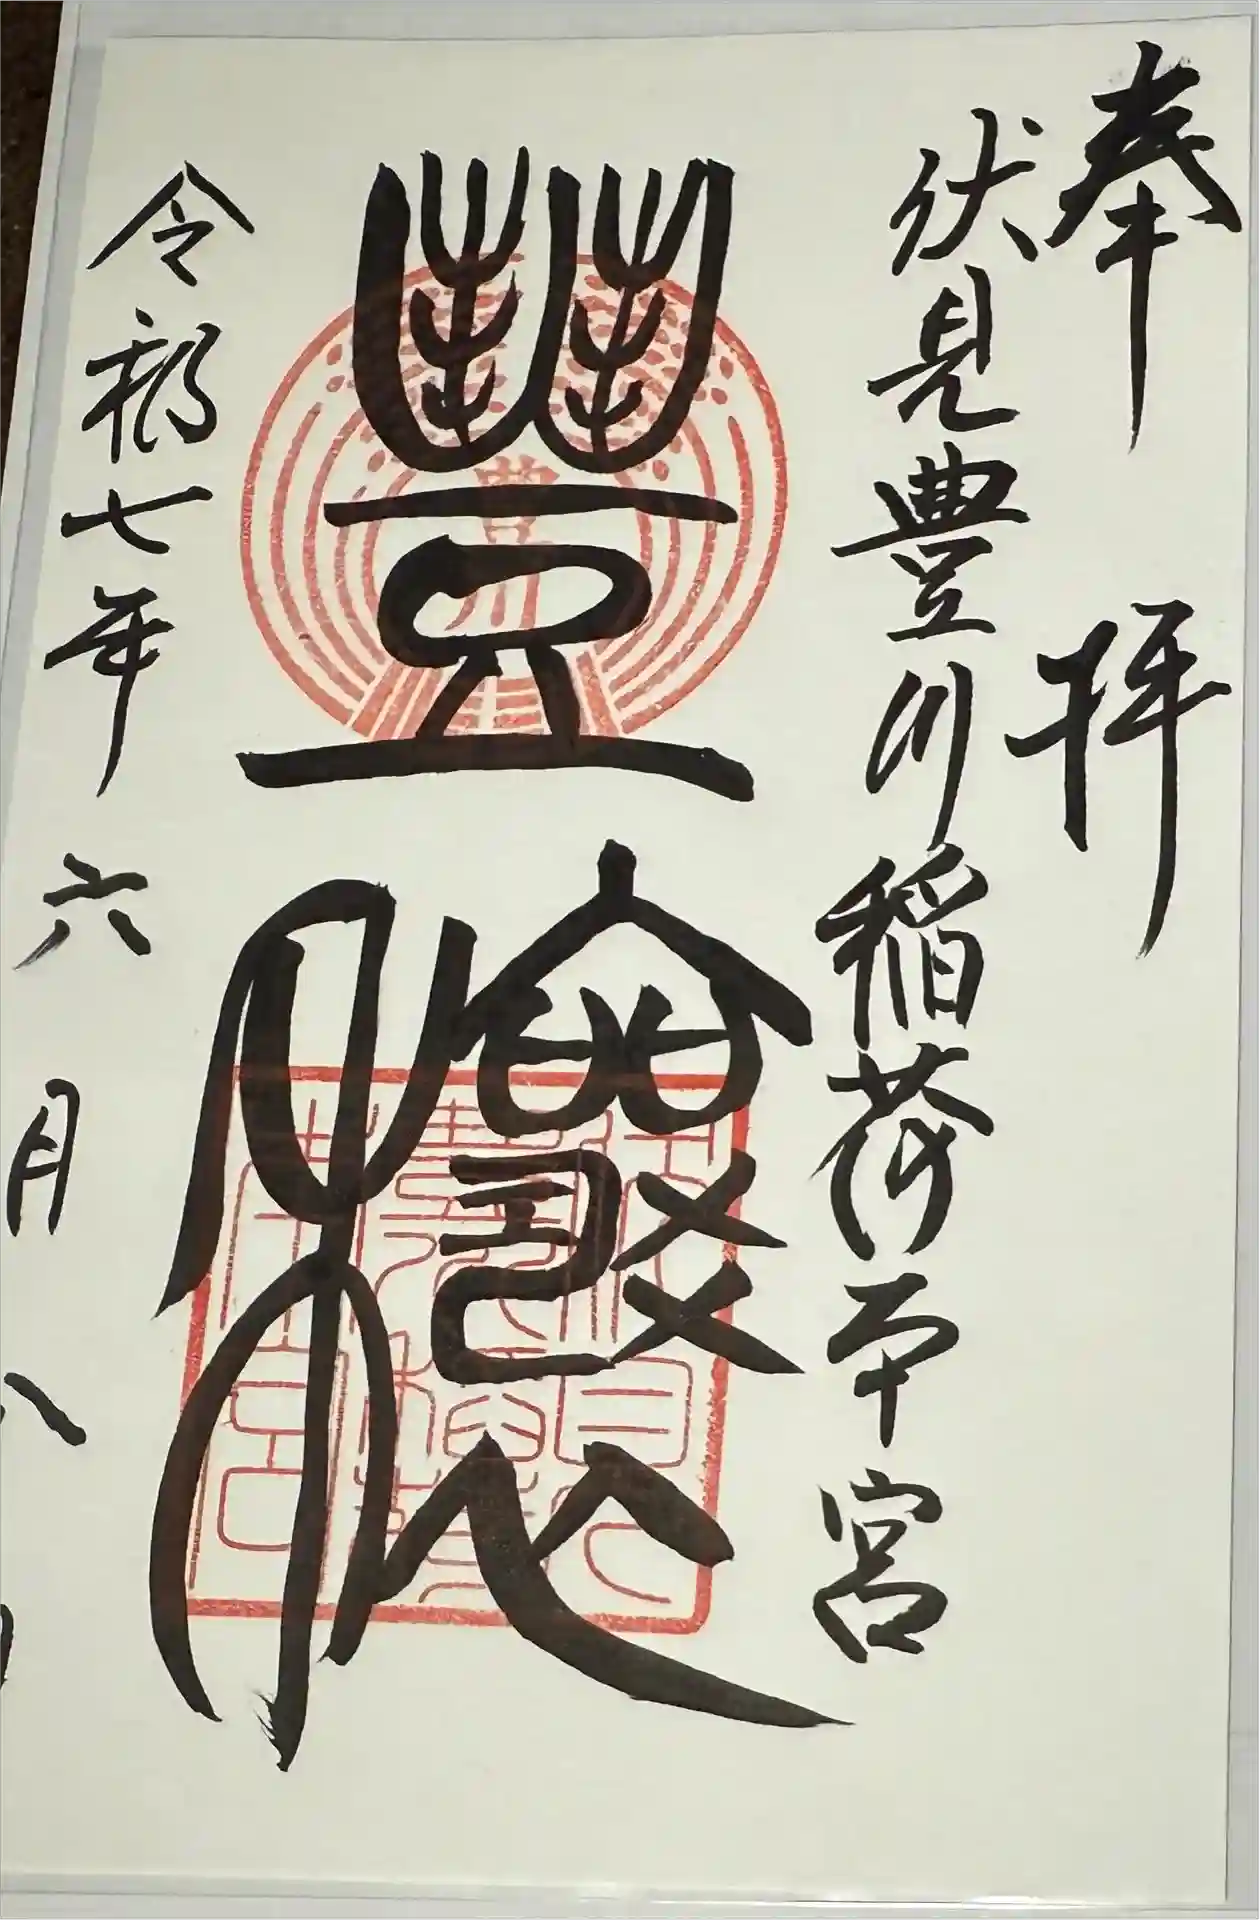 奉拝
伏見豊川稲荷本宮
豐穰
豊川
令和七年六月八